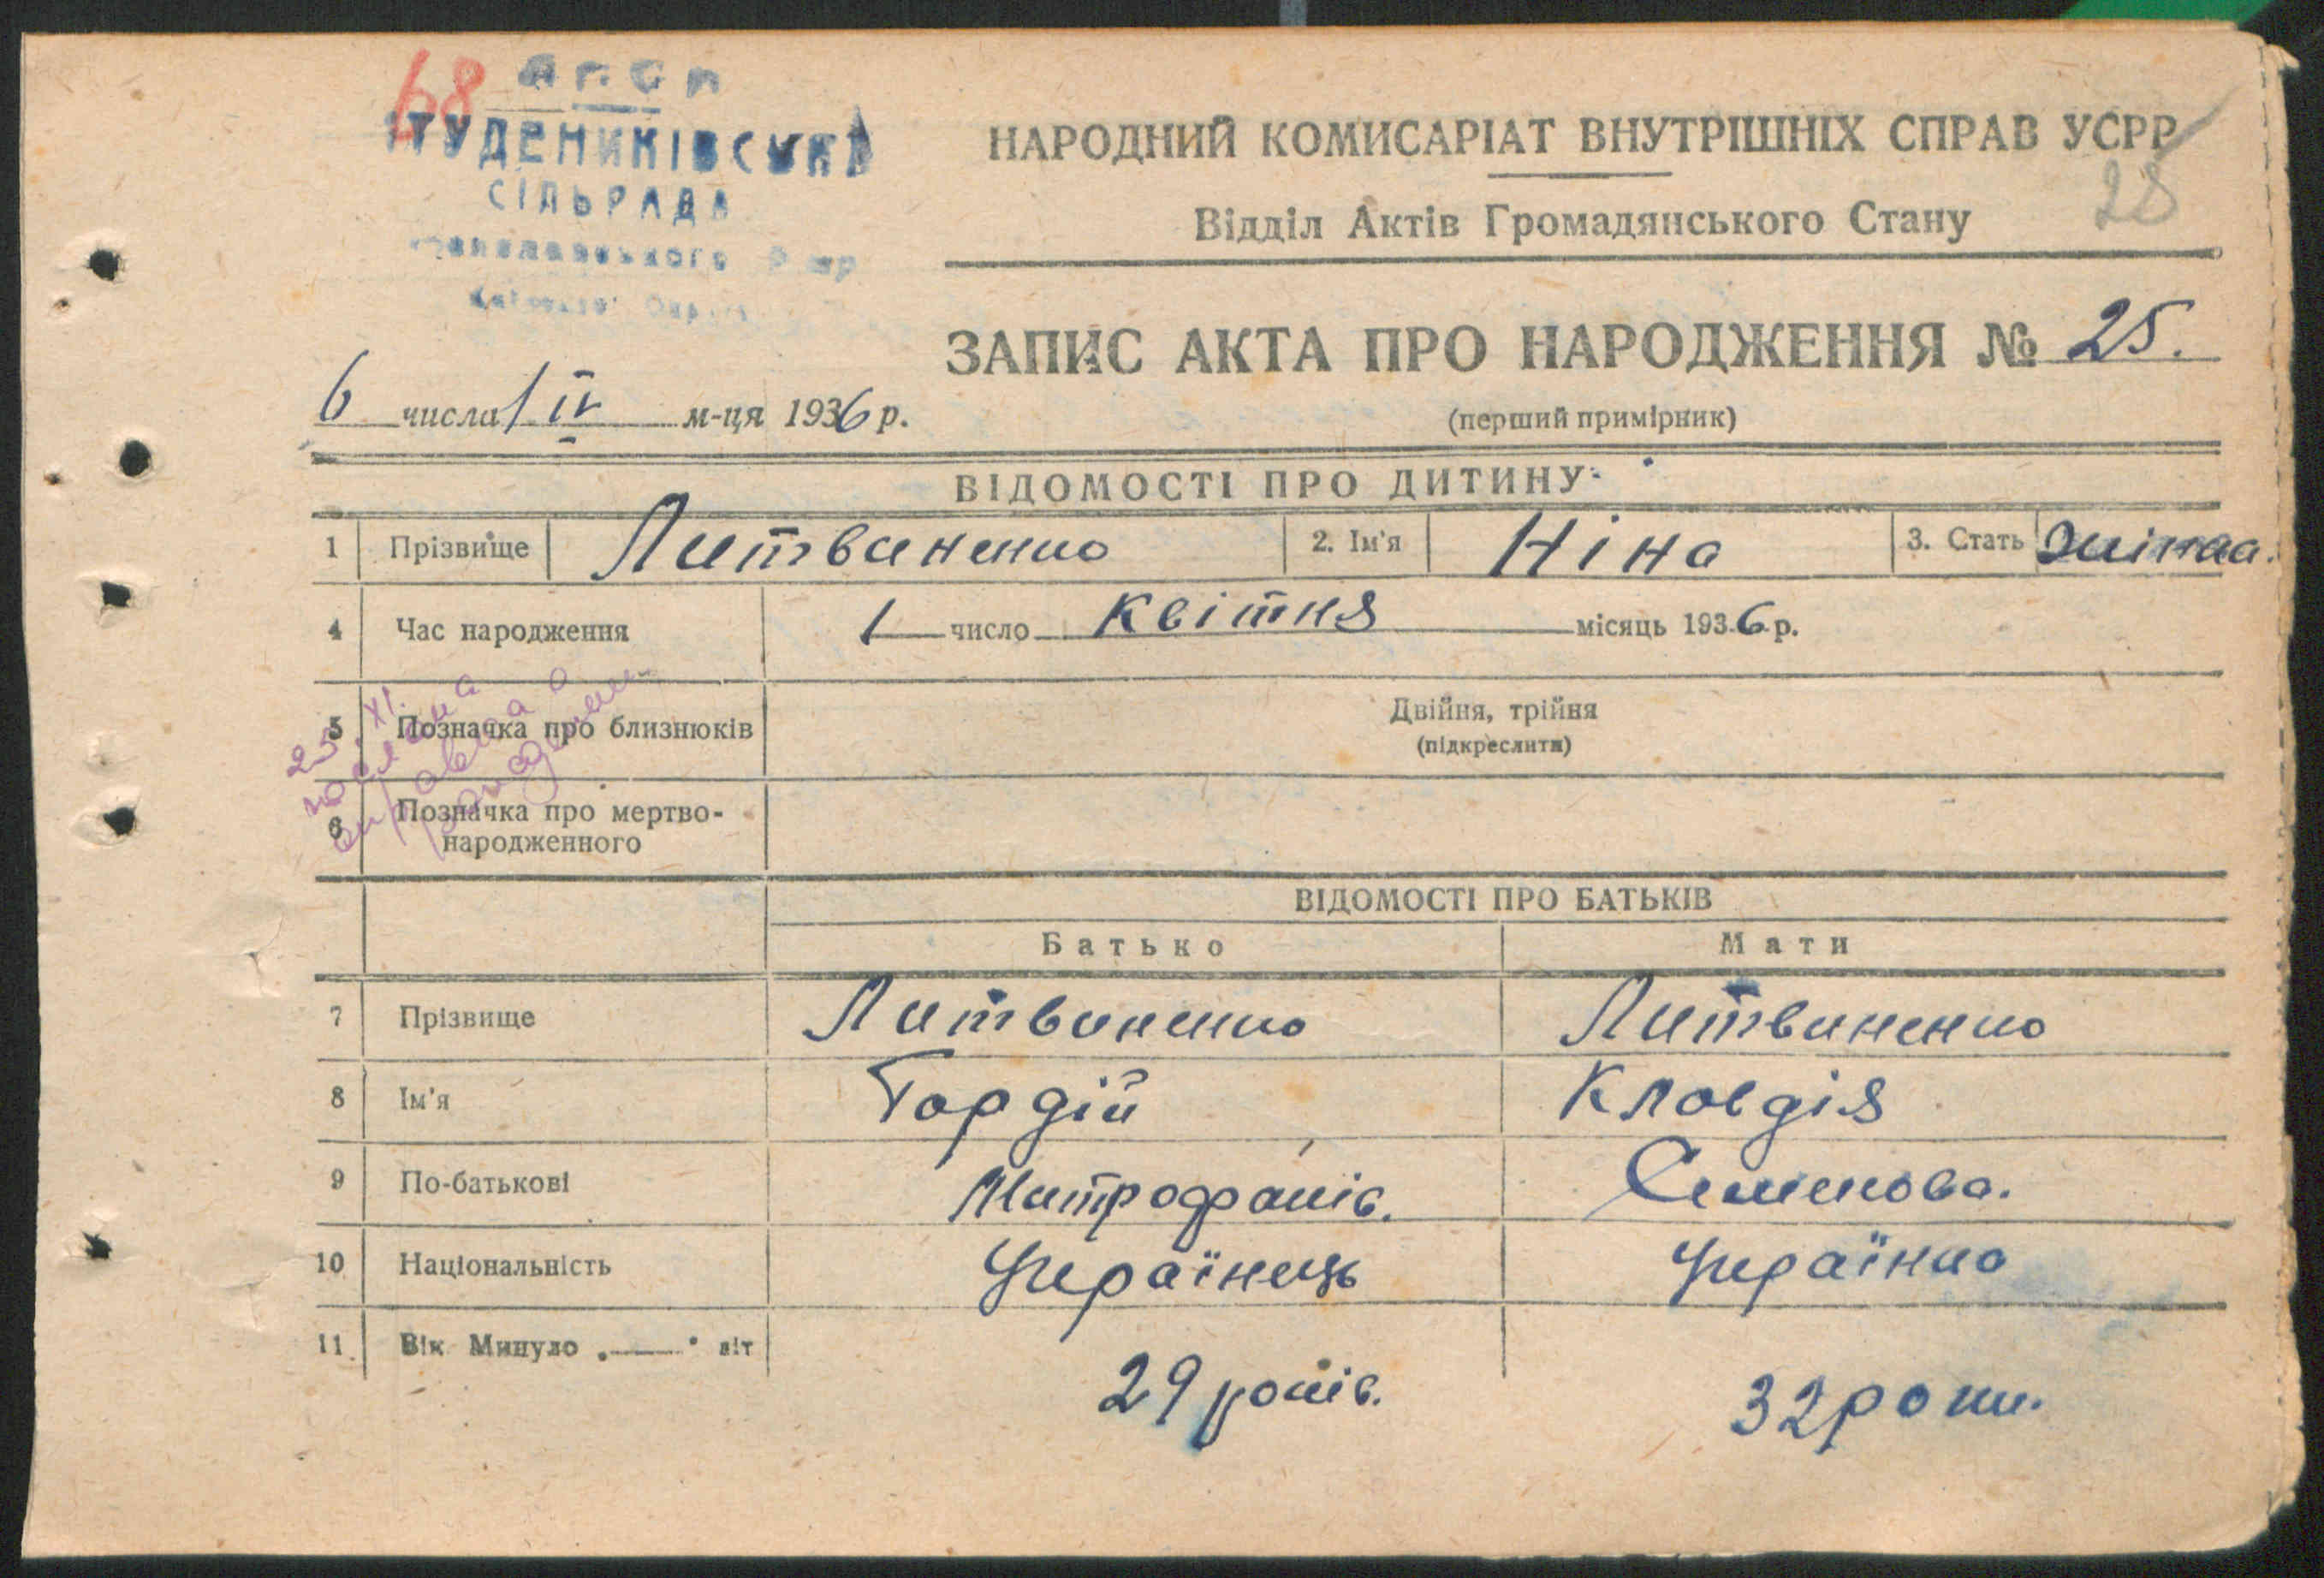 68
СТУДЕНИКІВСЬКА
СІЛЬРАДА
НАРОДНИЙ КОМИСАРІАТ ВНУТРІШНІХ СПРАВ УСРР
28
Відділ Актів Громадянського Стану
ЗАПИС АКТА ПРО НАРОДЖЕННЯ № 25.
6 числа IV м-ця 1936 р.
(перший примірник)
ВІДОМОСТІ ПРО ДИТИНУ
1 Прізвище Литвиненко 2. Ім'я Ніна 3. Стать жіноча.
4 Час народження 1 число квітня місяць 1936 р.
5 Позначка про близнюків Двійня, трійня
(підкреслити)
25 XI.
6 Позначка про мертво-
народженного
ВІДОМОСТІ ПРО БАТЬКІВ
Батько Мати
7 Прізвище Литвиненко Литвиненко
8 Ім'я Гордій Кловдія
9 По-батькові Митрофанів. Семенова.
10 Національність Українець Українка
11. Вік Минуло „—" літ 29 років. 32 роки.